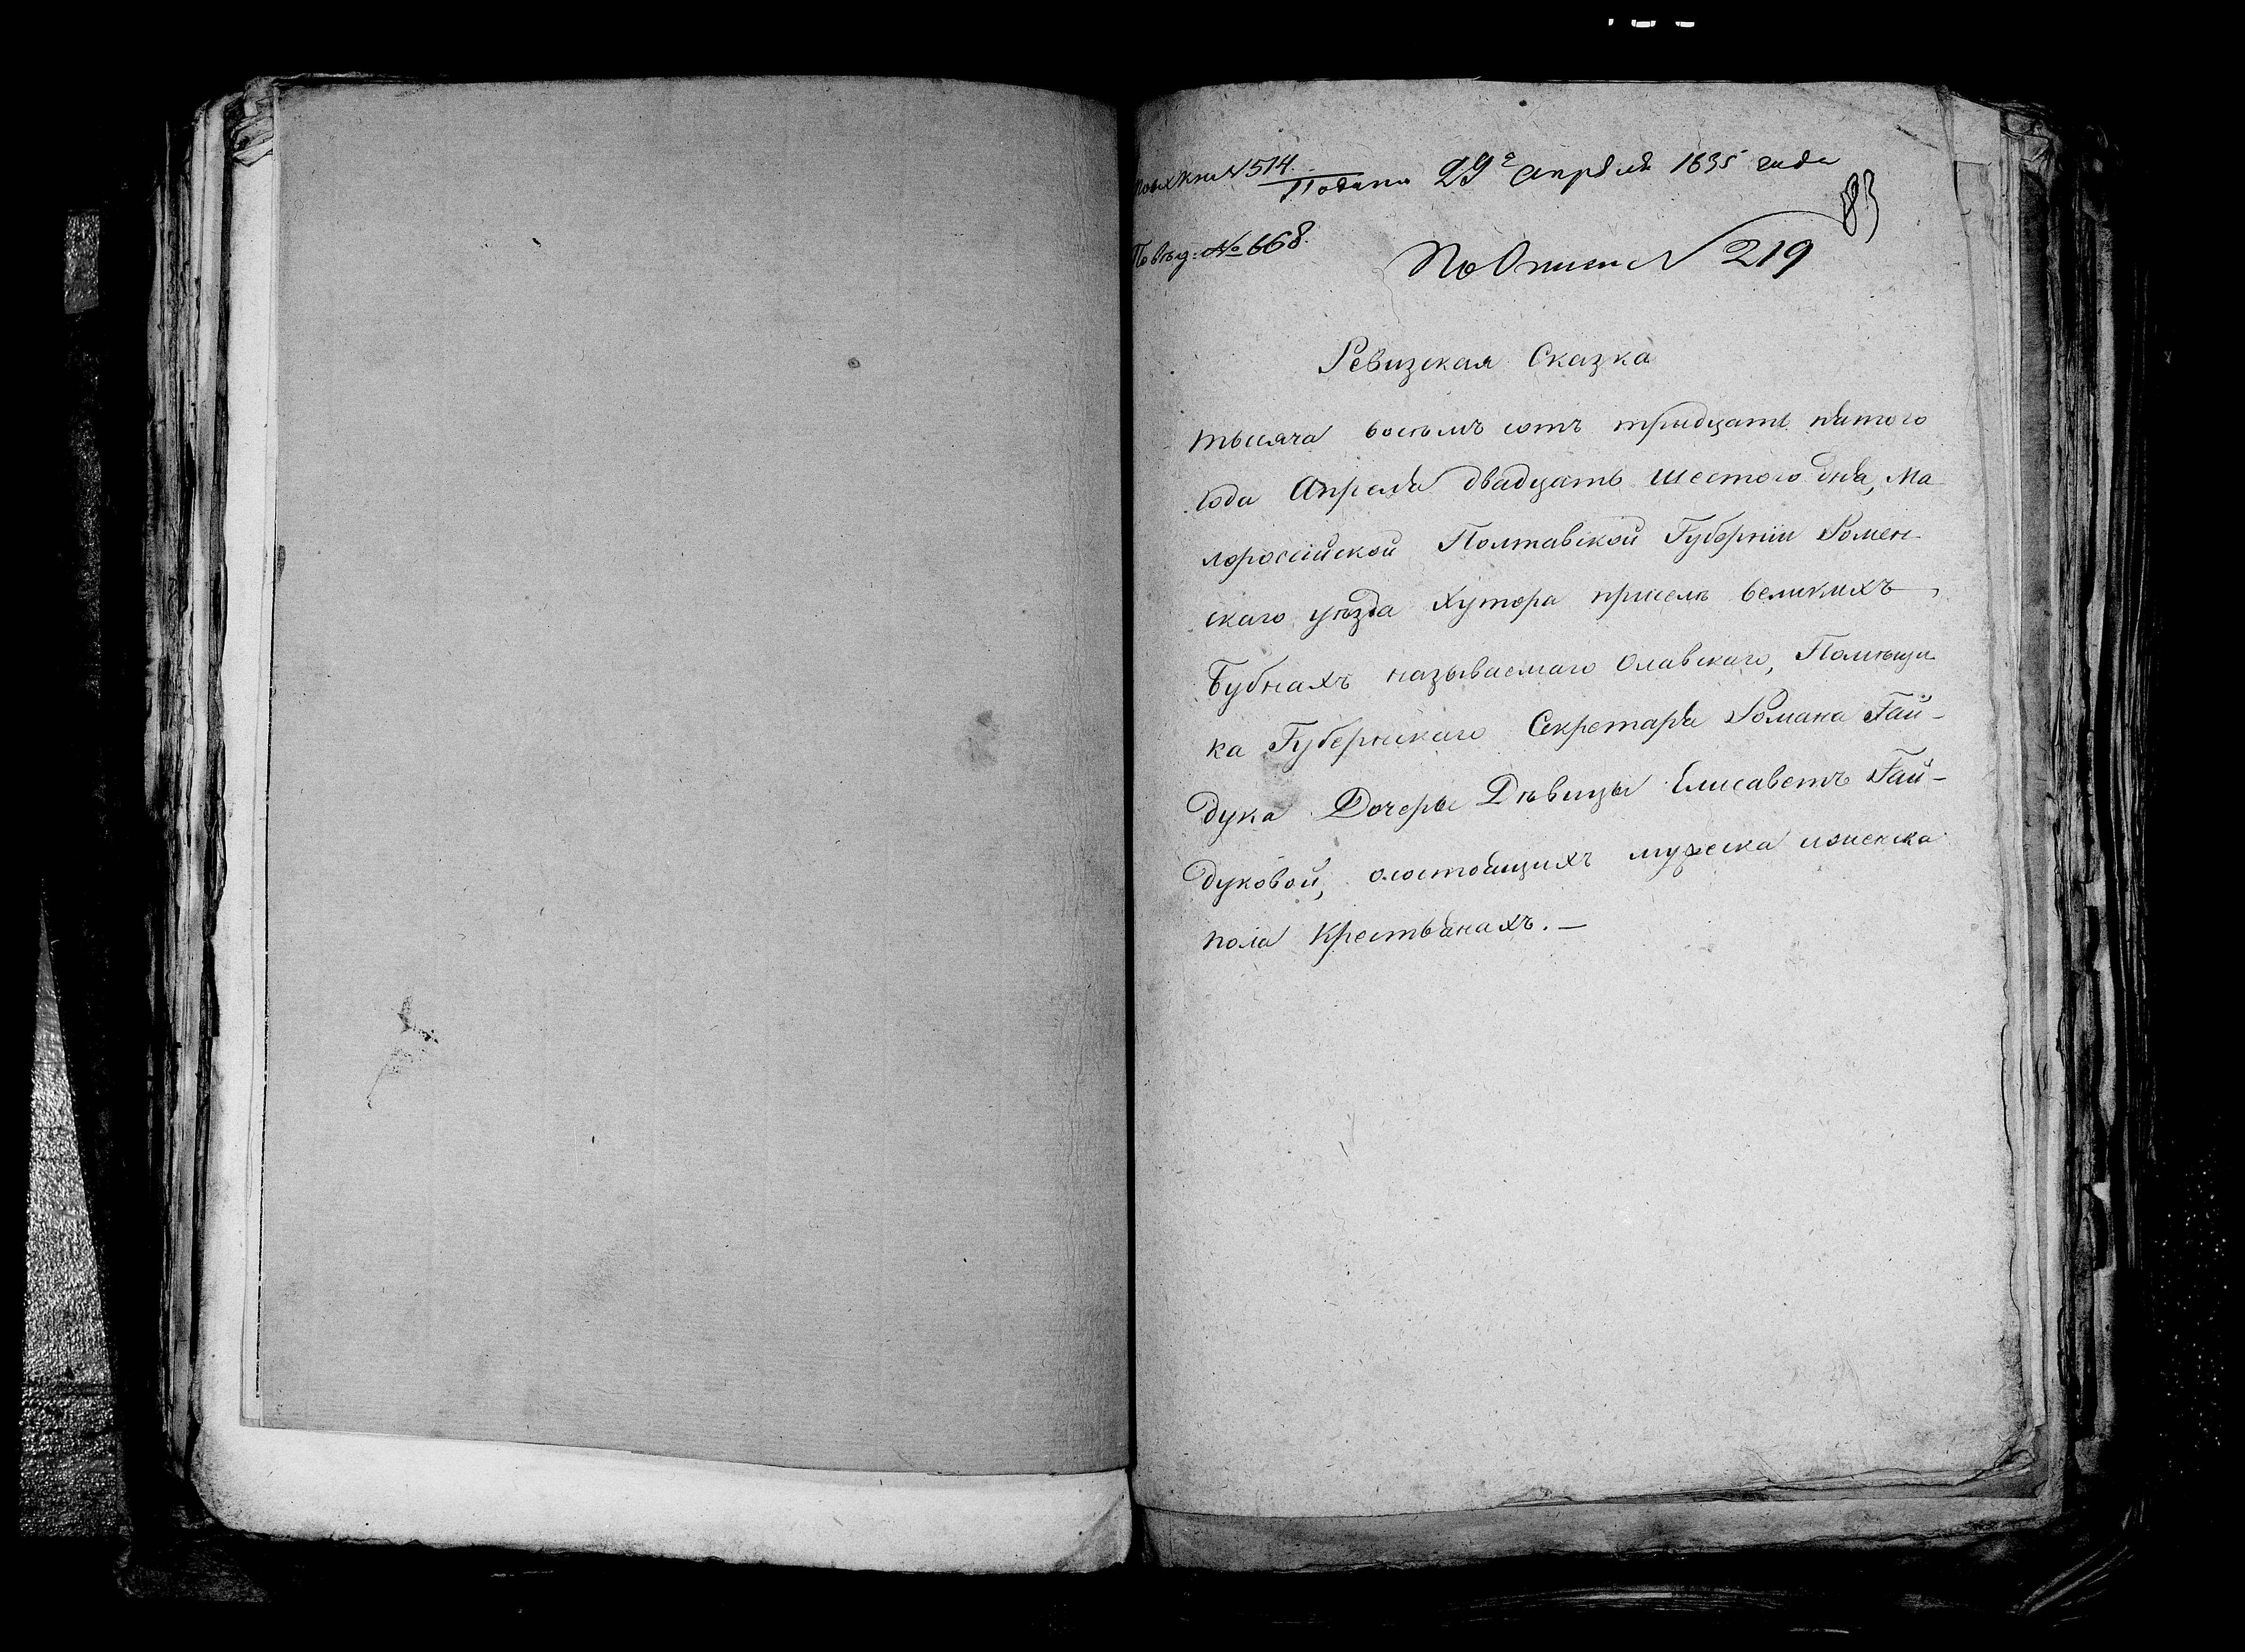 № 514.
Подана 29го Апреля 1835 года
83
По уезд: № 668.
По Описи № 219
Ревизская Сказка
тысяча восемь сотъ тридцать пятого
года Апреля двадцать шестого дня, Ма
лороссійской Полтавской Губерніи Ромен-
скаго уѣзда Хутора приселѣ великихъ,
Бубнахъ называемаго Олавскаго, Помѣщи
ка Губернскаго Секретаря Романа Гай-
дука Дочеры Дѣвицы Елисаветъ Гай-
дуковой, осостоящихъ мужеска иженска
пола Крестьянахъ. —